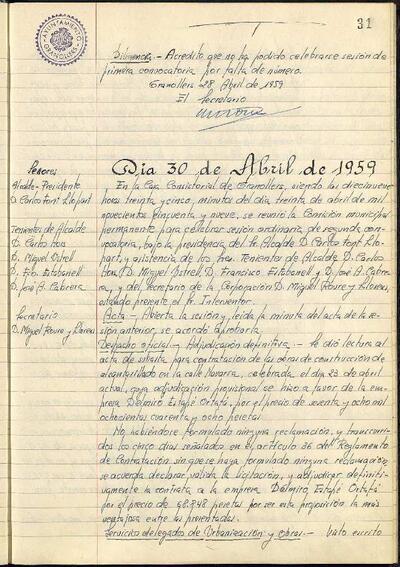 31
AYUNTAMIENTO
GRANOLLERS
Diligencia.- Acredito que no ha podido celebrarse sesión de
primera convocatoria por falta de número.
Granollers 28 Abril de 1959
El Secretario
Señores
Alcalde-Presidente
D. Carlos Font Llopart
Tenientes de Alcalde
D. Carlos
D. Miguel
D. Fco. Estabanell
D. José A. Cabrera
Secretario
D. Miguel Roure y Llorens
Dia 30 de Abril de 1959
En la Casa Consistorial de Granollers, siendo las diecinueve
horas treinta y cinco, minutos del día treinta de abril de mil
novecientos cincuenta y nueve, se reunió la Comisión municipal
permanente para celebrar sesión ordinaria, de segunda con-
vocatoria, bajo la presidencia del Sr. Alcalde D. Carlos Font Llo-
part, y asistencia de los Sres. Tenientes de Alcalde D. Carlos
D. Miguel D. Francisco Estabanell y D. José A. Cabre-
ra, y del Secretario de la Corporación D. Miguel Roure y Llorens,
estando presente el Sr. Interventor.
Acta.- Abierta la sesión y leída la minuta del acta de la se-
sión anterior, se acordó aprobarla.
Despacho oficial.- Adjudicación definitiva.- Se dió lectura al
acta de subasta para contratación de las obras de construcción de
alcantarillado en la calle Navarra, celebrada el día 23 de abril
actual, cuya adjudicación provisional se hizo a favor de la em-
presa Dalmiro Estapé Ortafá, por el precio de sesenta y ocho mil
ochocientos cuarenta y ocho pesetas.
No habiéndose formulado ninguna reclamación, y transcurri-
dos los cinco días señalados en el artículo 36 del Reglamento
de Contratación sin que se haya formulado ninguna reclamación,
se acuerda declarar válida la licitación, y adjudicar definiti-
vamente la contrata a la empresa Dalmiro Estapé Ortafá
por el precio de 68.848 pesetas por ser esta proposición la más
ventajosa entre las presentadas.
Servicios delegados de Urbanización y obras.- Visto escrito